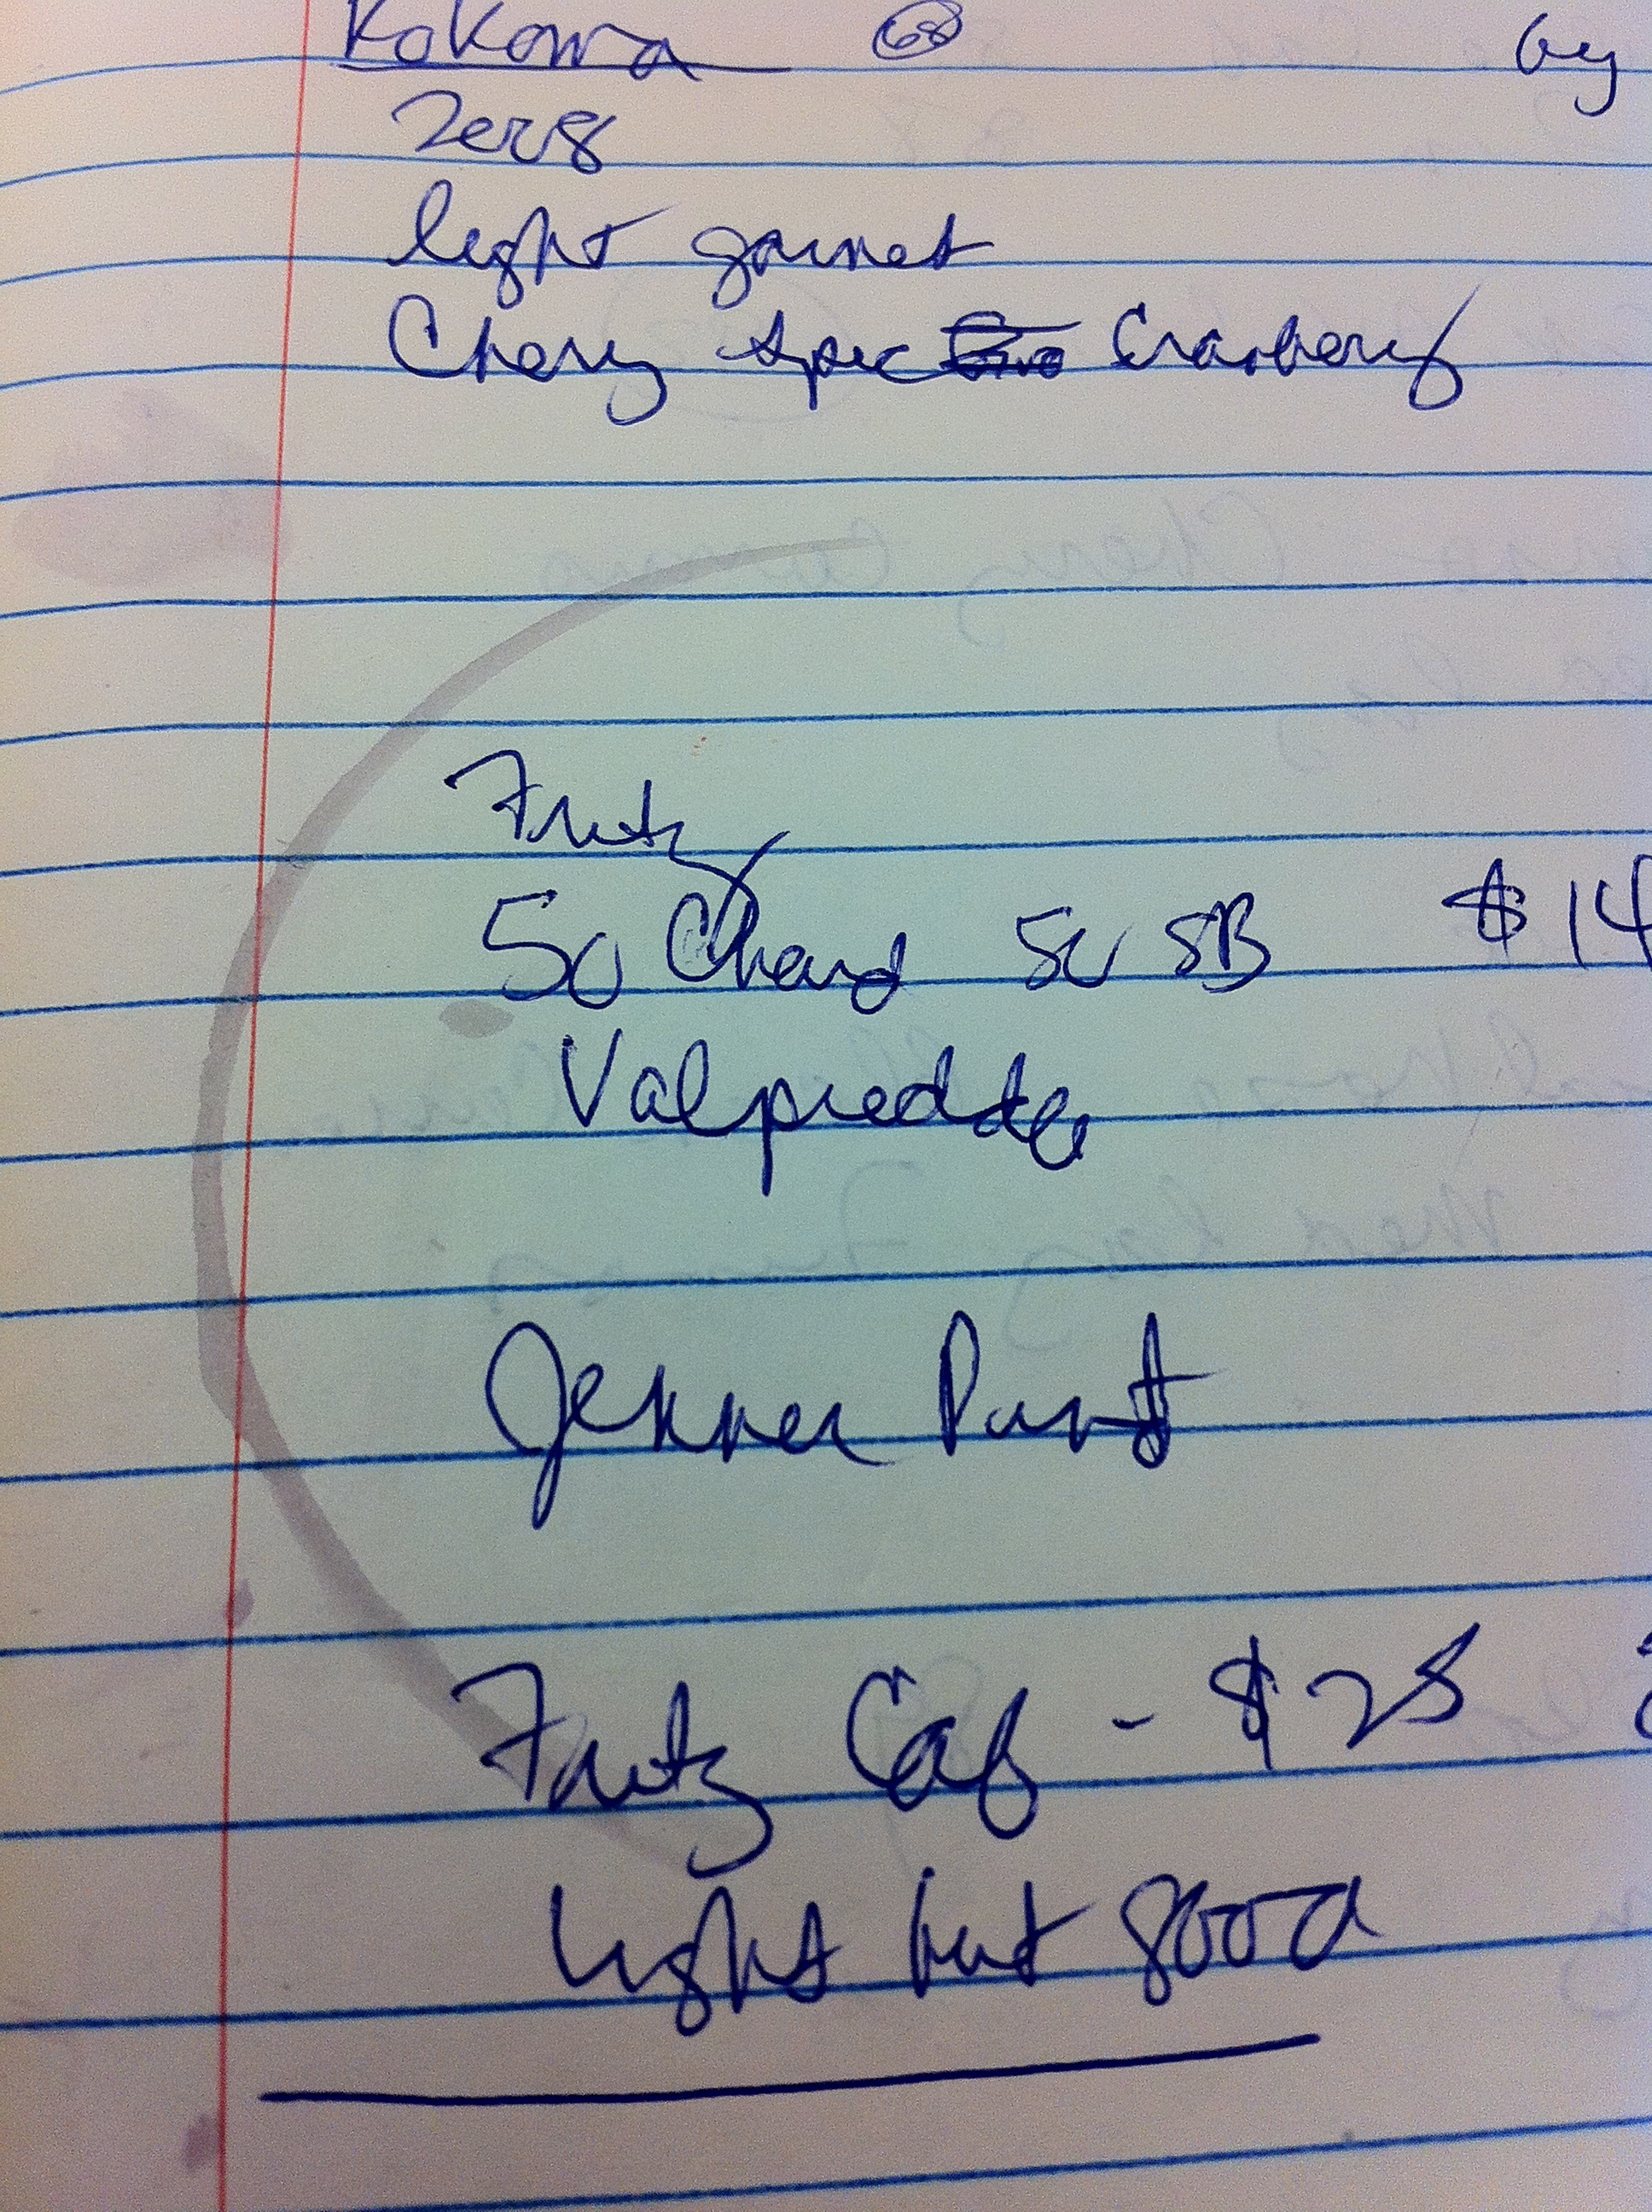 Kokomo 68 by
2008
light garnet
Cherry spice Cranberry
Fritz
50 Chard 50 SB $14
Valpredda
Jenner Pinot
Fritz Cab - $25
light but good